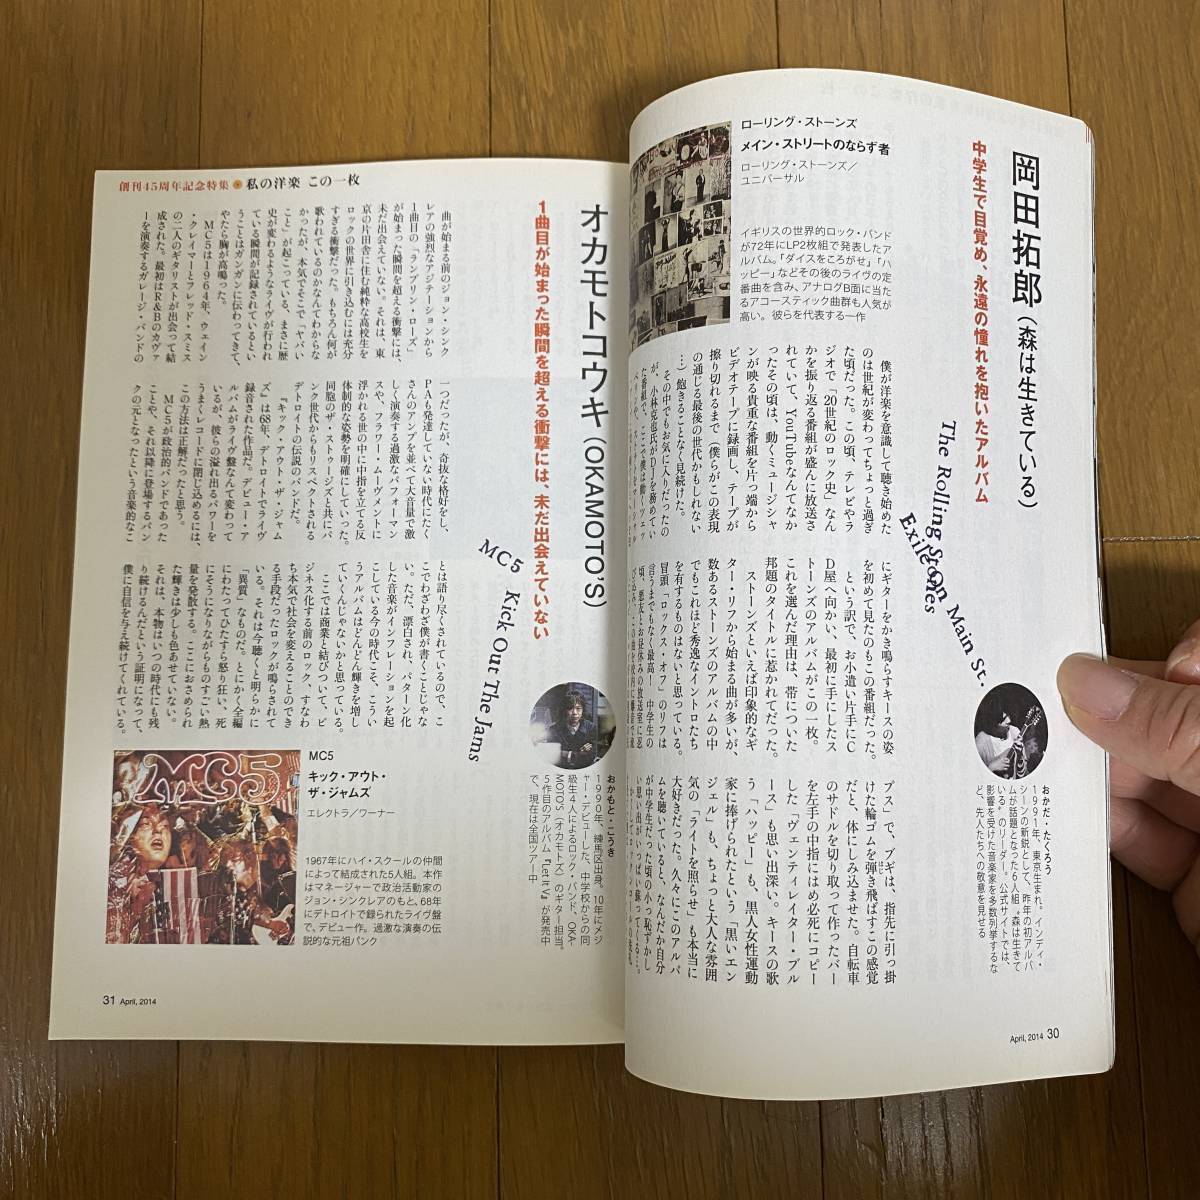 岡田拓郎（森は生きている）
中学生で目覚め、永遠の憧れを抱いたアルバム
ローリング・ストーンズ
メイン・ストリートのならず者
ローリング・ストーンズ／
ユニバーサル
イギリスの世界的ロック・バンド
が72年にLP2枚組で発表したア
ルバム。「ダイスをころがせ」「ハ
ッピー」などその後のライヴの定
番曲を含み、アナログB面に当た
るアコースティック曲群も人気が
高い。彼らを代表する一作
The Rolling Stones
Exile On Main St.
僕が洋楽を意識して聴き始めた
のは世紀が変わってちょっと過ぎ
た頃だった。この頃、テレビやラ
ジオで「20世紀のロック史」なん
かを振り返る番組が盛んに放送さ
れていて、YouTubeなんてなか
ったその頃は、動くミュージシャ
ンが映る貴重な番組を片っ端から
ビデオテープに録画し、テープが
擦り切れるまで（僕らがこの表現
の通じる最後の世代かもしれない
…）飽きることなく見続けた。
その中でもお気に入りだったの
が、小林克也氏がDJを務めてい
た番組で、ここで僕は動くツェッ
にギターをかき鳴らすキースの姿
を初めて見たのもこの番組だった。
という訳で、お小遣い片手にC
D屋へ向かい、最初に手にしたス
トーンズのアルバムがこの一枚。
これを選んだ理由は、帯についた
邦題のタイトルに惹かれてだった。
ストーンズといえば印象的なギ
ター・リフから始まる曲が多いが、
数あるストーンズのアルバムの中
でもこれほど秀逸なイントロたち
を有するものはないと思っている。
冒頭「ロックス・オフ」のリフは
言うまでもなく最高！ 中学生の
頃、悪友とお昼休みの放送室に忍
プス」で、ブギは、指先に引っ掛
けた輪ゴムを弾き飛ばすこの感覚
だと、体にしみ込ませた。自転車
のサドルを切り取って作ったバー
を左手の中指にはめ必死にコピー
した「ヴェンティレイター・ブル
ース」も思い出深い。キースの歌
う「ハッピー」も、黒人女性運動
家に捧げられたという「黒いエン
ジェル」も、ちょっと大人な雰囲
気の「ライトを照らせ」も本当に
大好きだった。久々にこのアルバ
ムを聴いていると、なんだか自分
が中学生だった頃の小っ恥ずかし
い思い出がいっぱい蘇ってくる…。
おかだ・たくろう
1991年、東京生まれ。インディ・
シーンの新鋭として、昨年の初アルバ
ムが話題となった6人組〝森は生きて
いる〟のリーダー。公式サイトでは、
影響を受けた音楽家を多数列挙するな
ど、先人たちへの敬意を見せる
April, 2014 30
創刊45周年記念特集 私の洋楽 この一枚
オカモトコウキ（OKAMOTO'S）
1曲目が始まった瞬間を超える衝撃には、未だ出会えていない
MC5 Kick Out The Jams
曲が始まる前のジョン・シンク
レアの強烈なアジテーションから
1曲目の「ランブリン・ローズ」
が始まった瞬間を超える衝撃には、
未だ出会えていない。それは、東
京の片田舎に住む純粋な高校生を
ロックの世界に引き込むには充分
すぎる衝撃だった。もちろん何が
歌われているのかなんてわからな
かったが、本気でそこで「ヤバい
こと」が起こっている、まさに歴
史が変わるようなライヴが行われ
ている瞬間が記録されているとい
うことはガンガンに伝わってきて、
やたら胸が高鳴った。
MC5は1964年、ウェイン
・クレイマーとフレッド・スミス
の二人のギタリストが出会って結
成された。最初はR&Bのカヴァ
ーを演奏するガレージ・バンドの
一つだったが、奇抜な格好をし、
PAも発達していない時代にたく
さんのアンプを並べて大音量で激
しく演奏する過激なパフォーマン
スや、フラワー・ムーヴメントに
浮かれる世の中に中指を立てる反
体制的な姿勢を明確にしていった。
同胞のザ・ストゥージズと共にパ
ンク世代からもリスペクトされる
デトロイトの伝説のバンドだ。
『キック・アウト・ザ・ジャム
ズ』は68年、デトロイトでライヴ
録音された作品だ。デビュー・ア
ルバムがライヴ盤なんて変わって
いるが、彼らの溢れ出るパワーを
うまくレコードに閉じ込めるには、
この方法は正解だったと思う。
MC5が政治的バンドであった
ことや、それ以降に登場するパン
クの元となったという音楽的なこ
とは語り尽くされているので、こ
こでわざわざ僕が書くことじゃな
い。ただ、漂白され、パターン化
した音楽がインフレーションを起
こしている今の時代こそ、こうい
うアルバムはどんどん輝きを増し
ていくんじゃないかと思っている。
ここでは商業と結びついて、ビ
ジネス化する前のロック、すなわ
ち本気で社会を変えることのでき
る手段だったロックが鳴らされて
いる。それは今聴くと明らかに
「異質」なものだ。とにかく全編
にわたってひたすら怒り狂い、死
にそうになりながらものすごい熱
量を発散する。ここにおさめられ
た輝きは少しも色あせていない。
それは、本物はいつの時代にも残
り続けるんだという証明になって、
僕に自信を与え続けてくれている。
おかもと・こうき
1990年、練馬区出身。10年にメジ
ャー・デビューした、中学校からの同
級生4人によるロック・バンド、OKA
MOTO'S（オカモトズ）のギター担当。
5作目のアルバム『Let It V』が発売中
で、現在は全国ツアー中
MC5
キック・アウト・
ザ・ジャムズ
エレクトラ／ワーナー
1967年にハイ・スクールの仲間
によって結成された5人組。本作
はマネージャーで政治活動家の
ジョン・シンクレアのもと、68年
にデトロイトで録られたライヴ盤
で、デビュー作。過激な演奏の伝
説的な元祖パンク
MC5
31 April, 2014